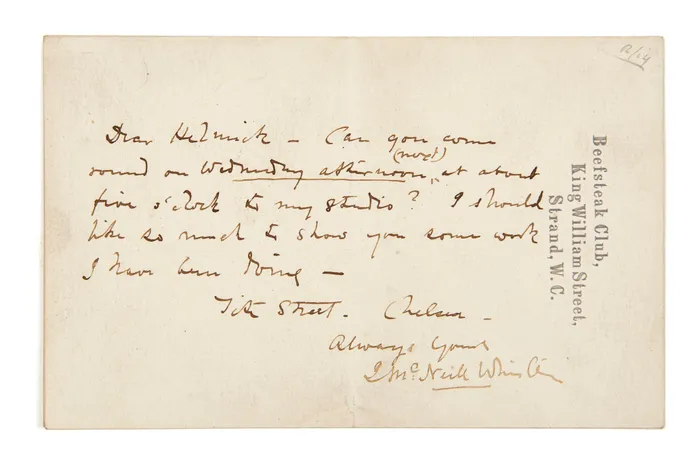 Dear Helmick – Can you come
round on Wednesday afternoon (next), at about
five o'clock to my studio? I should
like so much to show you some work
I have been doing –
Tite Street. Chelsea –
Always Yours
J McNeill Whistler
Beefsteak Club,
King William Street,
Strand, W.C.